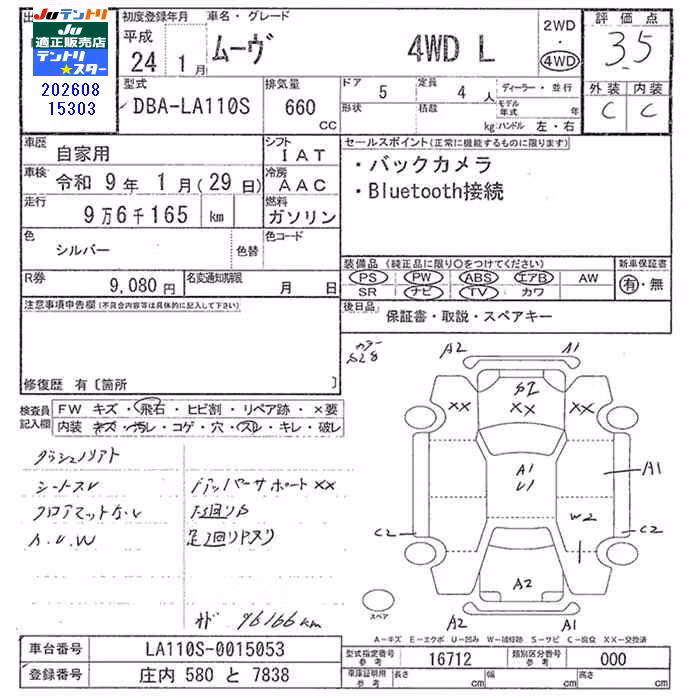 Juテントリ
Ju 適正販売店
テントリ★スター
202608
15303
初度登録年月
平成
24 1月
車名・グレード
ムーヴ 4WD L
2WD
・
4WD
評価点
3.5
外装 内装
C C
型式
DBA-LA110S
排気量
660 CC
ドア 5
形状
定員 4 人
積載 kg
ディーラー・並行
モデル年式 年
ハンドル 左・右
車歴
自家用
シフト
IAT
車検
令和 9年 1月(29日)
冷房
AAC
走行
9万6千165 km
燃料
ガソリン
色
シルバー
色替
色コード
R券
9,080円
名変通知期限
月 日
セールスポイント(正常に機能するものに限ります)
・バックカメラ
・Bluetooth接続
装備品(純正品に限り○をつけてください)
PS PW ABS エアB AW
SR ナビ TV カワ
新車保証書
有・無
後日品
保証書・取説・スペアキー
注意事項申告欄(不具合内容等は具体的に記入して下さい)
修復歴 有〔箇所 〕
検査員記入欄
FW キズ・飛石・ヒビ割・リペア跡・×要
内装 キズ・汚レ・コゲ・穴・スレ・キレ・破レ
シートスレ
A.U.W
アッパーサポートXX
下回りサビ
96166km
カラー
S28
A2
A1
XX
XX
XX
A1
U1
A1
W2
C2
C2
A2
A2
A1
スペア
A-キズ E-エクボ U-凹み W-補修跡 S-サビ C-腐食 XX-交換済
車台番号
LA110S-0015053
登録番号
庄内 580 と 7838
型式指定番号 参考
16712
類別区分番号 参考
000
車庫証明用 参考
長さ cm
幅 cm
高さ cm